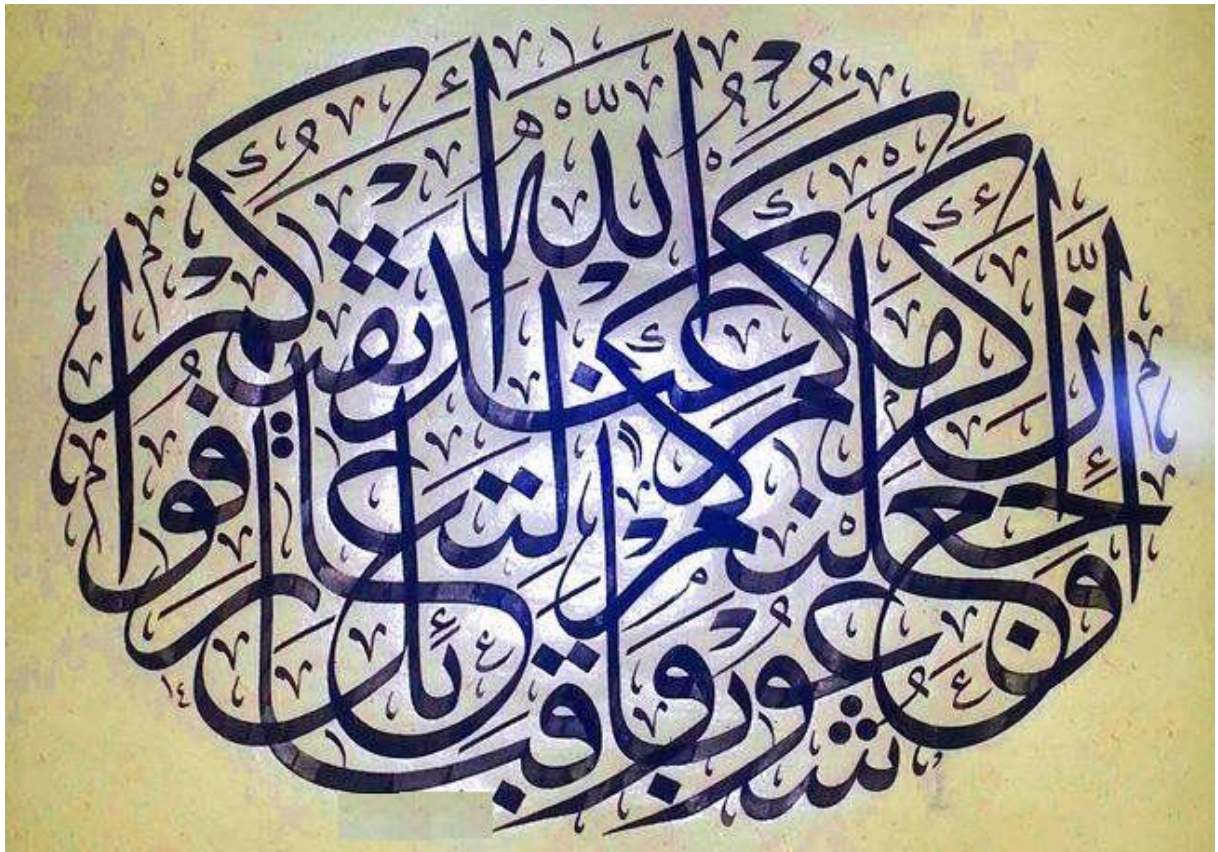 وَجَعَلْنٰكُمْ شُعُوبًا وَقَبَائِلَ لِتَعَارَفُوا
إِنَّ أَكْرَمَكُمْ عِنْدَ اللّٰهِ أَتْقٰيكُمْ